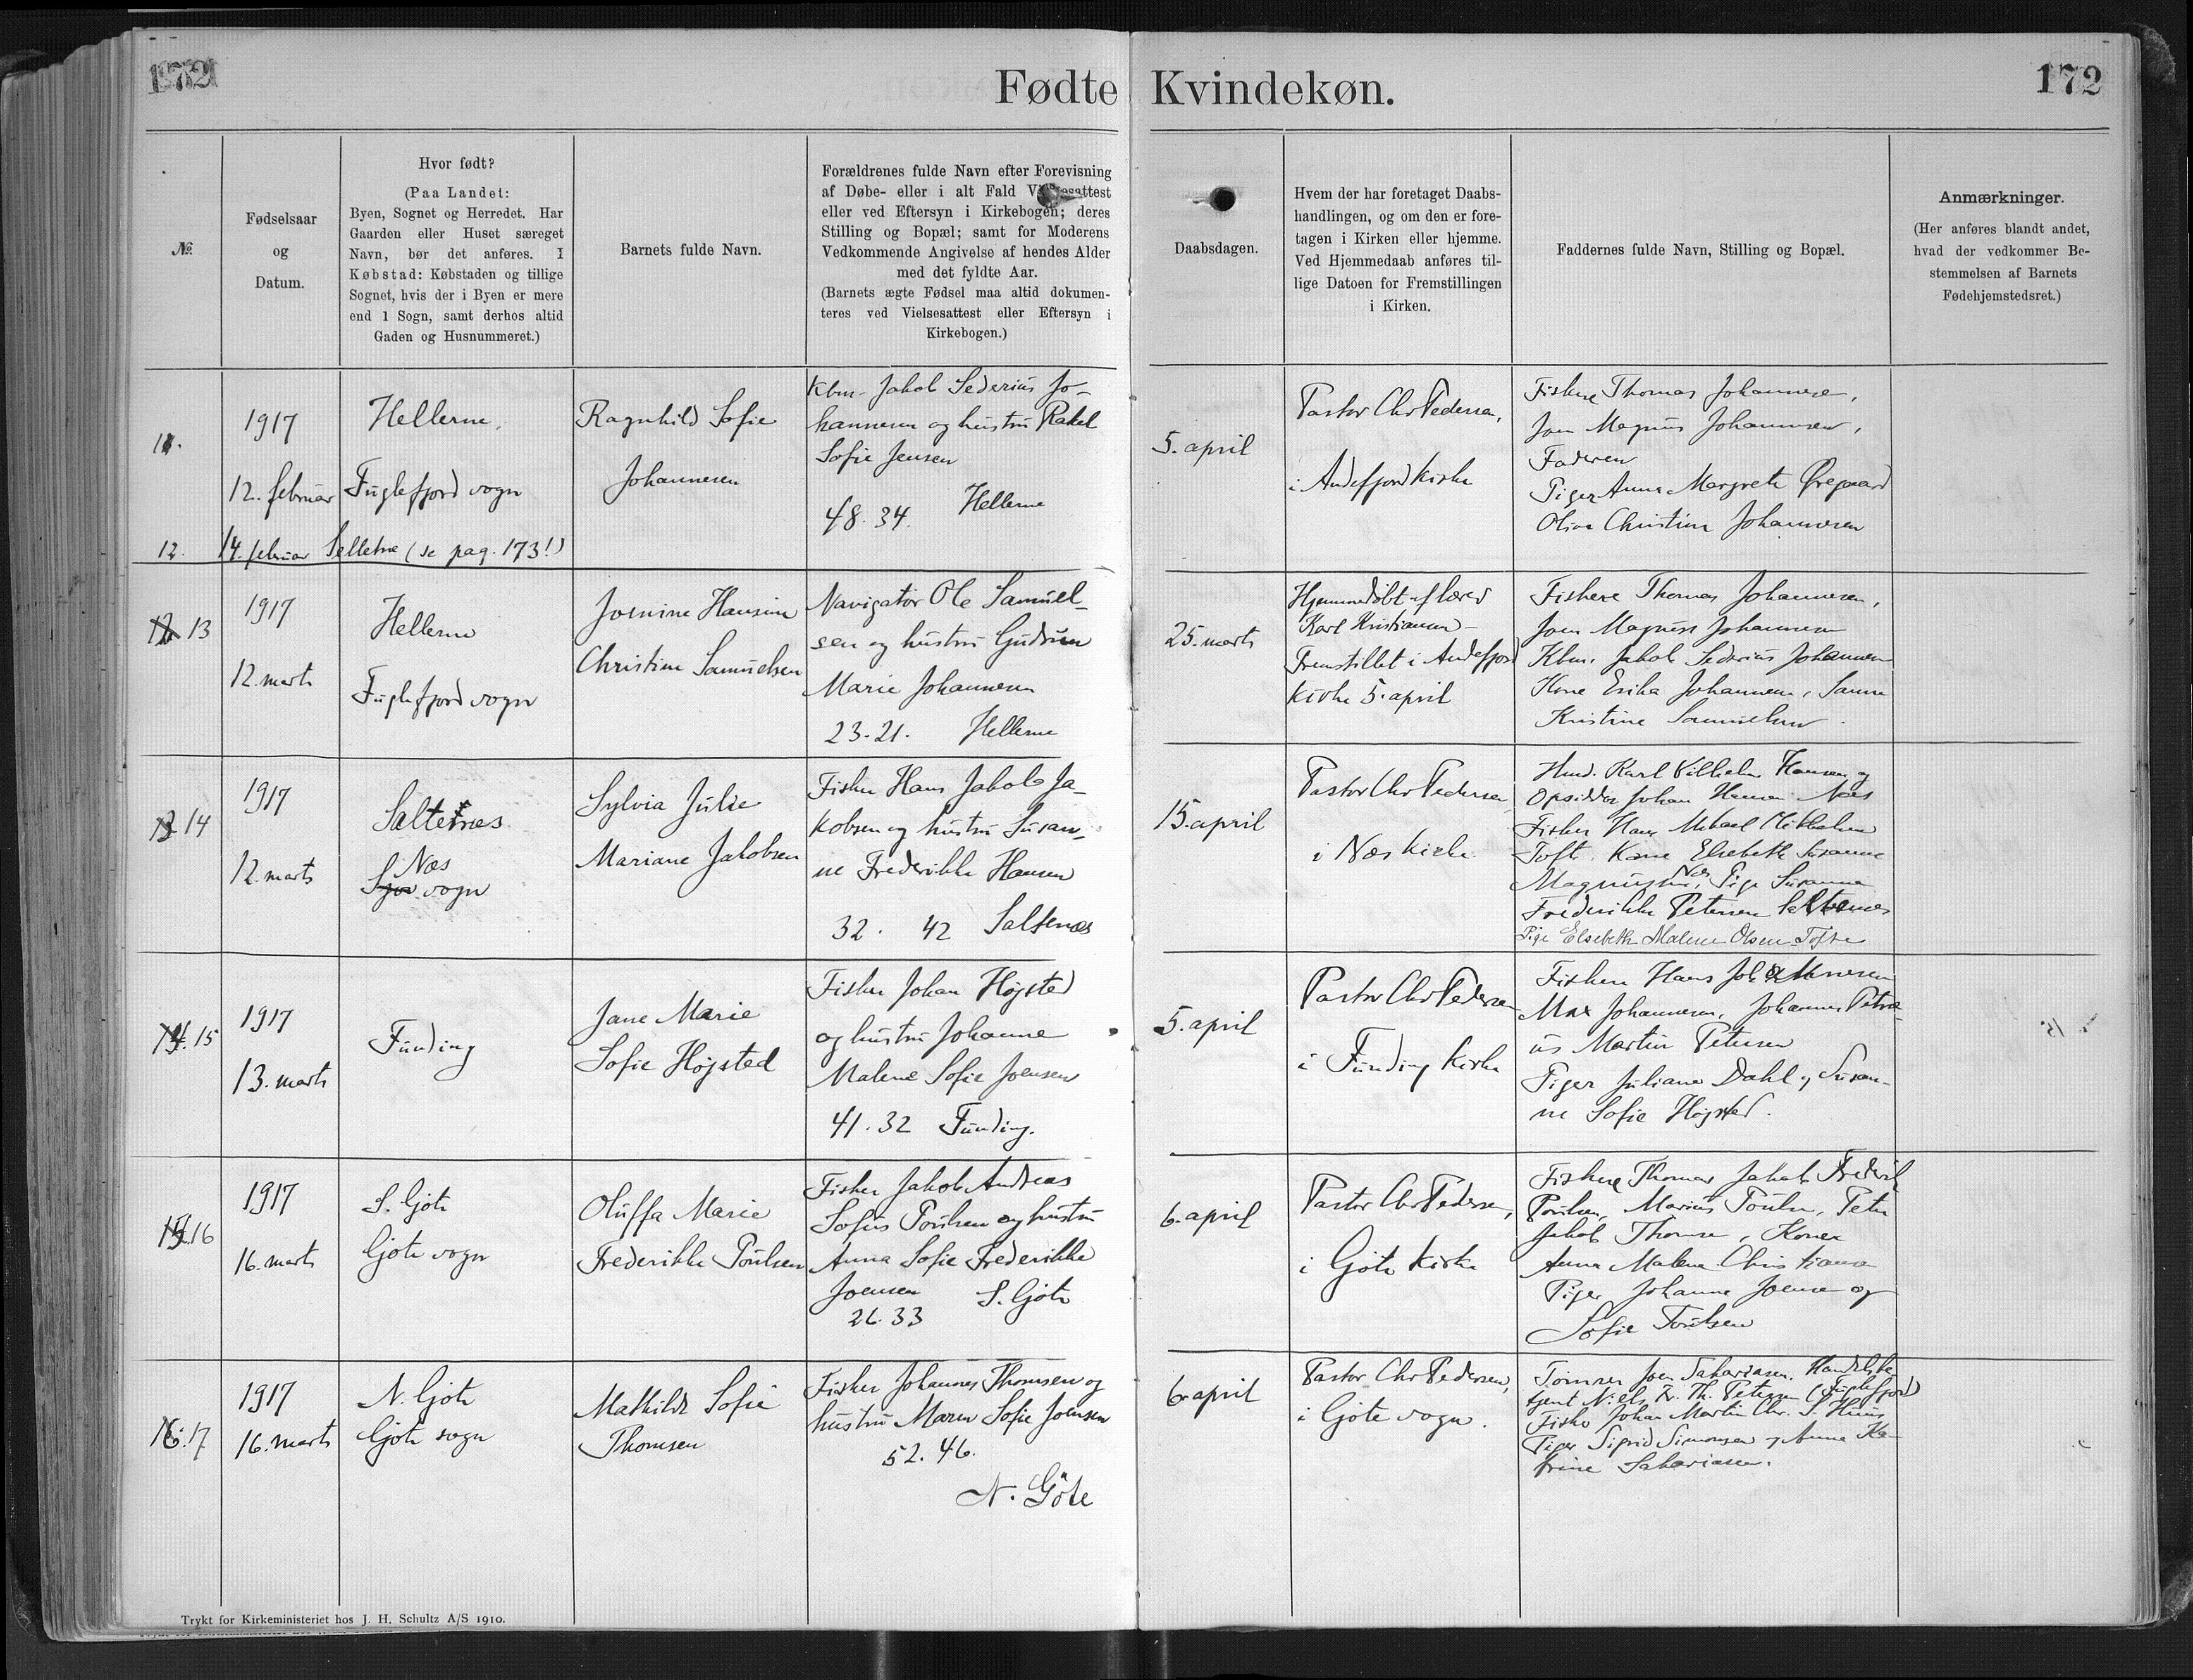 172
Fødte Kvindekøn.
172
№
Fødselsaar
og
Datum.
Hvor født?
(Paa Landet:
Byen, Sognet og Herredet. Har
Gaarden eller Huset særeget
Navn, bør det anføres. I
Købstad: Købstaden og tillige
Sognet, hvis der i Byen er mere
end 1 Sogn, samt derhos altid
Gaden og Husnummeret.)
Barnets fulde Navn.
Forældrenes fulde Navn efter Forevisning
af Døbe- eller i alt Fald Vielsesattest
eller ved Eftersyn i Kirkebogen; deres
Stilling og Bopæl; samt for Moderens
Vedkommende Angivelse af hendes Alder
med det fyldte Aar.
(Barnets ægte Fødsel maa altid dokumen-
teres ved Vielsesattest eller Eftersyn i
Kirkebogen.)
Daabsdagen.
Hvem der har foretaget Daabs-
handlingen, og om den er fore-
tagen i Kirken eller hjemme.
Ved Hjemmedaab anføres til-
lige Datoen for Fremstillingen
i Kirken.
Faddernes fulde Navn, Stilling og Bopæl.
Anmærkninger.
(Her anføres blandt andet,
hvad der vedkommer Be-
stemmelsen af Barnets
Fødehjemstedsret.)
11.
1917
12. februar
Hellerne,
Fuglefjord sogn
Ragnhild Sofie
Johannesen
Kbm. Jakob Sederius Jo-
hannesen og hustru Rakel
Sofie Jensen
48. 34. Hellerne
5. april
Pastor Chr Pedersen,
i Andefjord kirke
Fiskere Thomas Johannesen,
Joen Magnus Johannesen,
Faderen
Piger Anna Margrete Øregaard
Olina Christine Johannesen
12. 14. februar Selletræ (se pag. 173!)
13
1917
12. marts
Hellerne
Fuglefjord sogn
Joenine Hansine
Christine Samuelsen
Navigatør Ole Samuel-
sen og hustru Gudrun
Marie Johannesen
23-21. Hellerne
25. marts
Hjemmedøbt af lærer
Karl Kristiansen -
Fremstillet i Andefjord
kirke 5. april
Fiskere Thomas Johannesen,
Joen Magnus Johannesen
Kbm. Jakob Sederius Johannesen
Kone Erika Johannesen, Sanne
Kristine Samuelsen.
14
1917
12. marts
Saltenæs
Næs
sogn
Sylvia Julie
Mariane Jakobsen
Fisker Hans Jakob Ja-
kobsen og hustru Susan-
ne Frederikke Hansen
32. 42 Saltenæs
15. april
Pastor Chr Pedersen
i Næs kirke
Karl Vilhelm Hansen og
Opsidder Johan Hansen Næs
Fisker Hans Mikael Mikkelsen
Toft. Kone Elsebeth Susanne
Magnussen, Næs, Pige Susanne
Frederikke Petersen Saltenæs
Pige Elsebeth Malene Olsen Tofte
15
1917
13. marts
Funding
Jane Marie
Sofie Højsted
Fisker Johan Højsted
og hustru Johanne
Malene Sofie Joensen
41. 32 Funding.
5. april
Pastor Chr Pedersen
i Funding kirke
Fiskere Hans Johannesen
Max Johannesen, Johannes Petræ-
us Martin Petersen
Piger Juliane Dahl og Susan-
ne Sofie Højsted.
16
1917
16. marts
S. Gjøte
Gjøte sogn
Oluffa Marie
Frederikke Poulsen
Fisker Jakob Andreas
Sofus Poulsen og hustru
Anna Sofie Frederikke
Joensen S. Gjøte
26. 33
6. april
Pastor Chr Pedersen,
i Gøte kirke
Fiskere Thomas Jakob Fredrik
Poulsen, Marius Poulsen, Peter
Jakob Thomsen, Koner
Anna Malene Christiansen
Piger Johanne Joensen og
Sofie Poulsen
17
1917
16. marts
N. Gjøte
Gjøte sogn
Mathilde Sofie
Thomsen
Fisker Johannes Thomsen og
hustru Maren Sofie Joensen
52. 46.
N. Gøte
6. april
Pastor Chr Pedersen,
i Gjøte sogn.
Tømrer Joen Sakariasen. Handelsbe-
tjent Niels Kr. Th. Petersen (Fuglefjord)
Fisker Johan Martin Chr. S. Huus
Piger Sigrid Simonsen og Anna Ka-
trine Sakariasen.
Trykt for Kirkeministeriet hos J. H. Schultz A/S 1910.